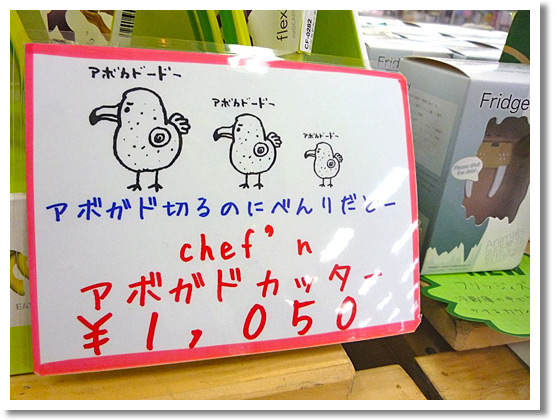 flex
CF-0282
アボカドードー
アボカドードー
アボカドードー
アボガド切るのにべんりだどー
chef'n
アボガドカッター
¥1,050
Fridge
Please shut
the door!